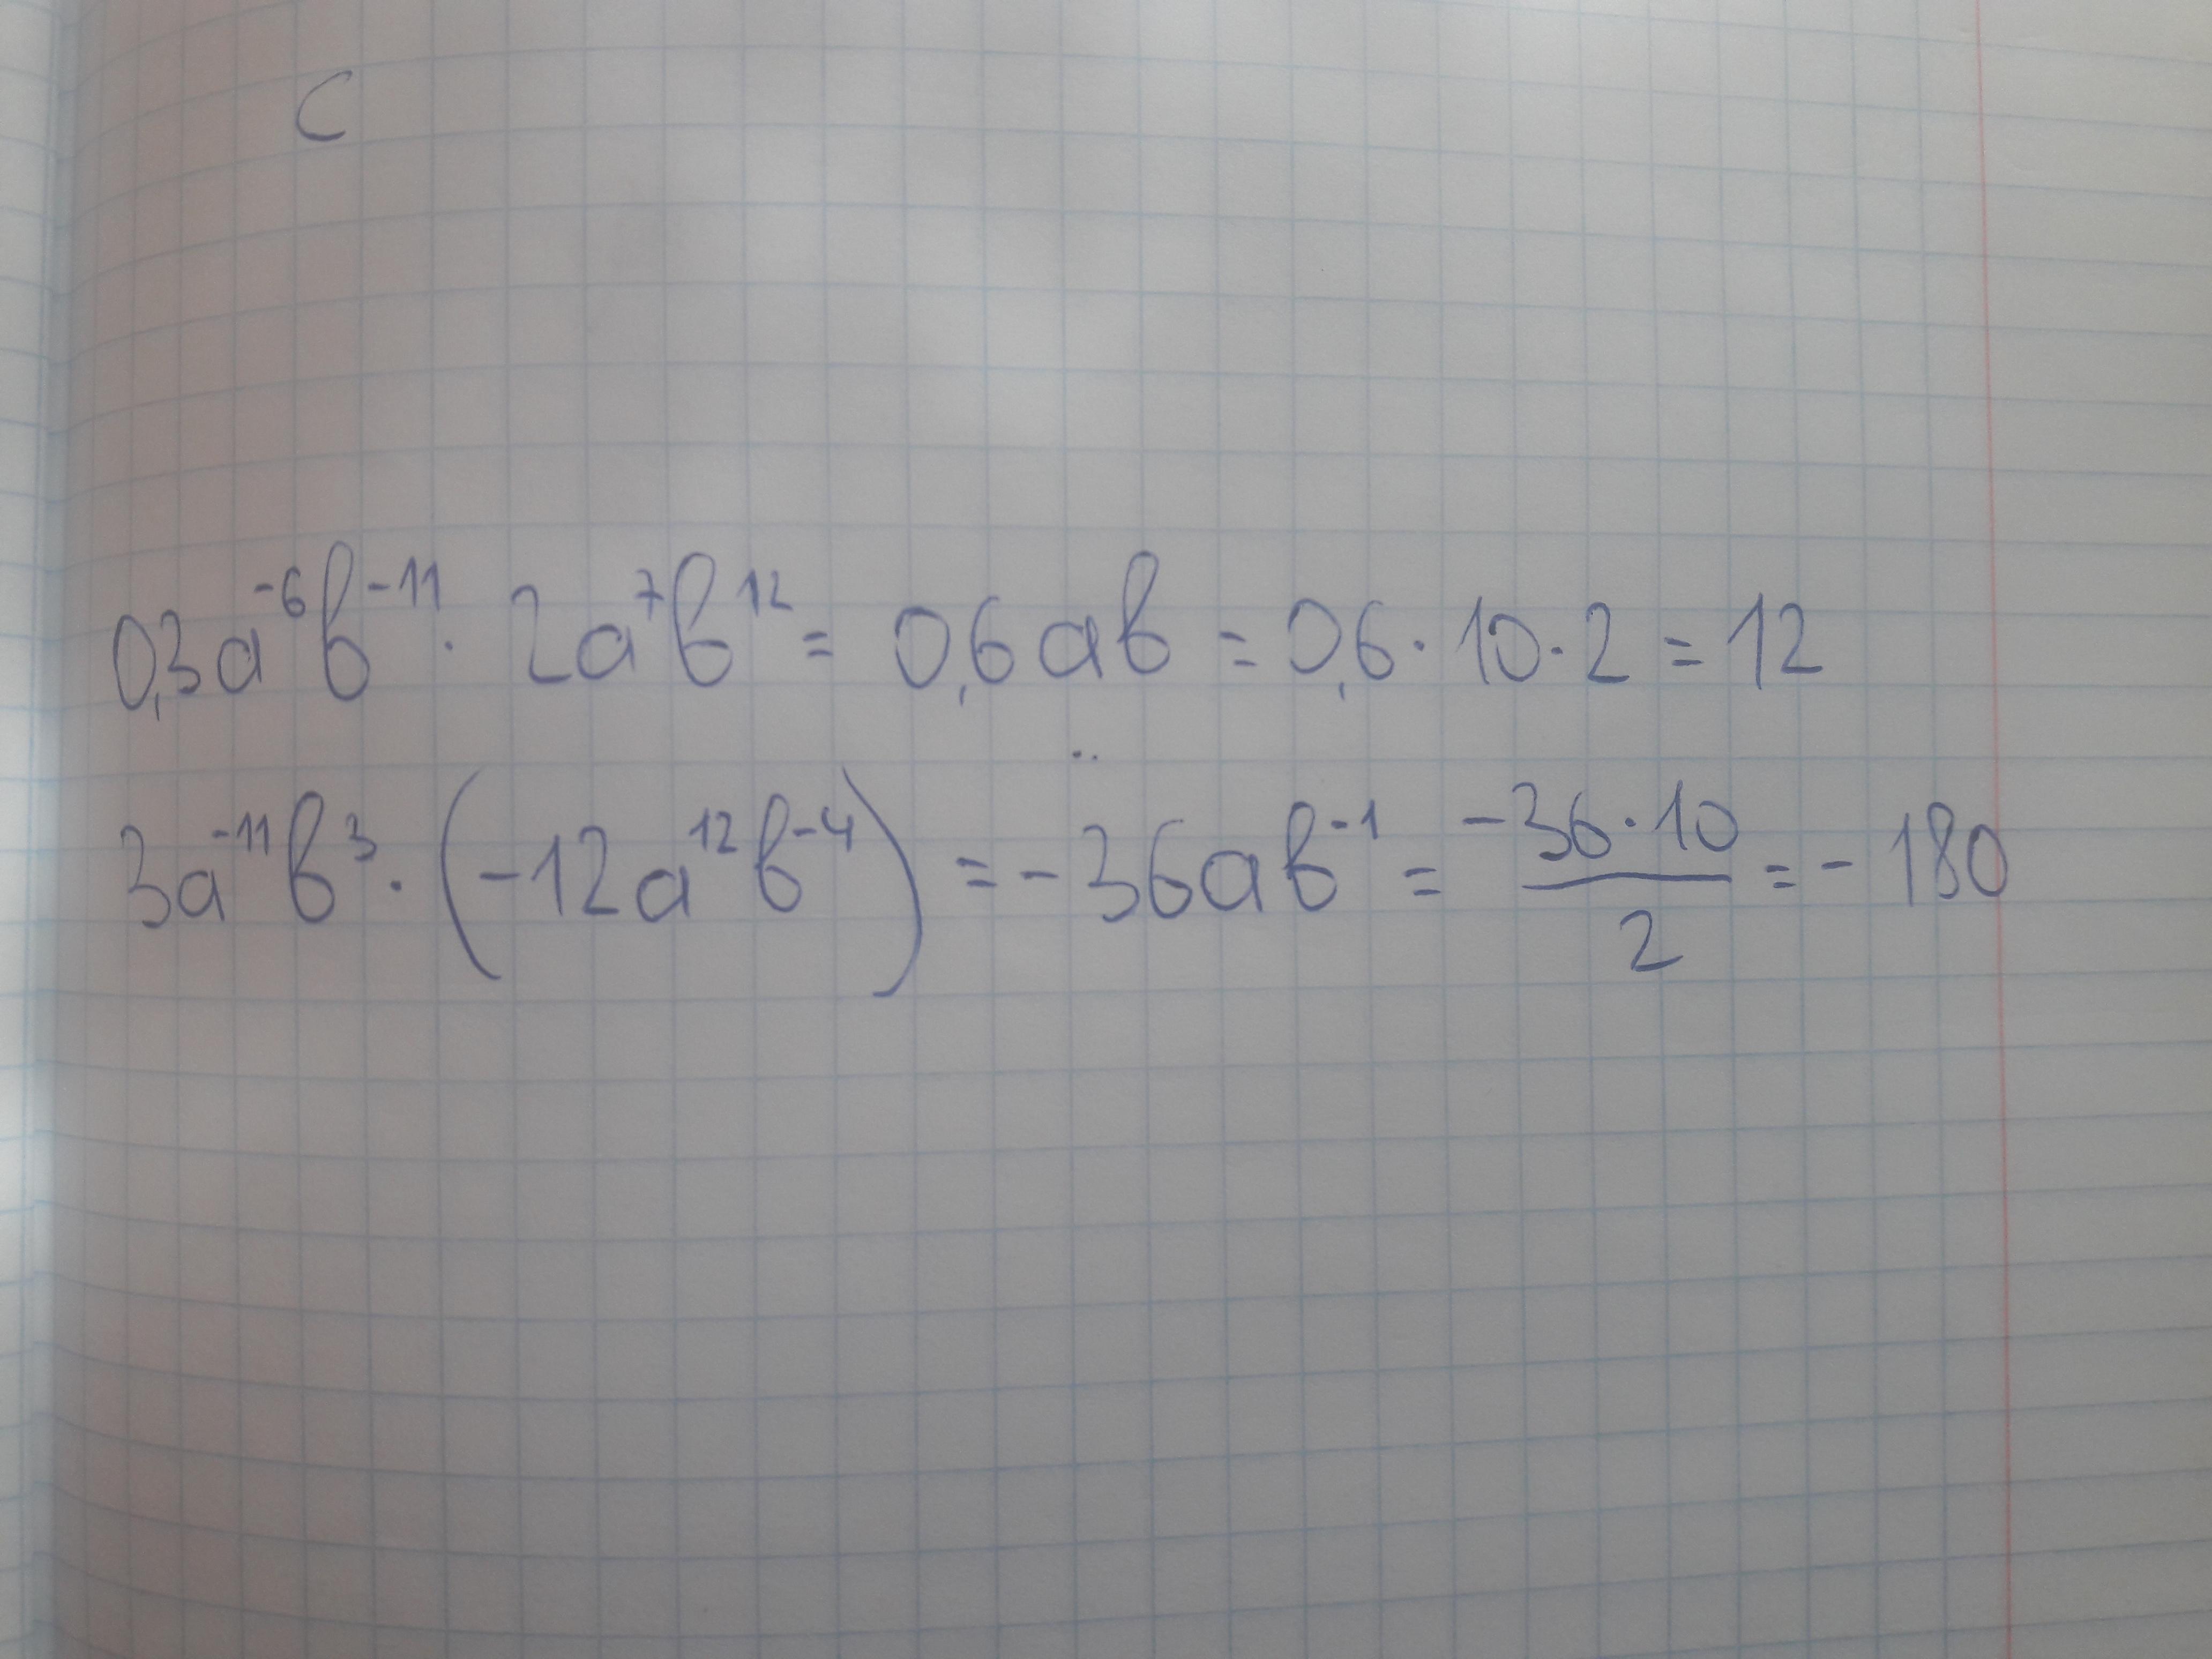 С
0,3a⁻⁶b⁻¹¹ · 2a⁷b¹² = 0,6ab = 0,6 · 10 · 2 = 12
3a⁻¹¹b³ · (-12a¹²b⁻⁴) = -36ab⁻¹ = -36·10/2 = -180